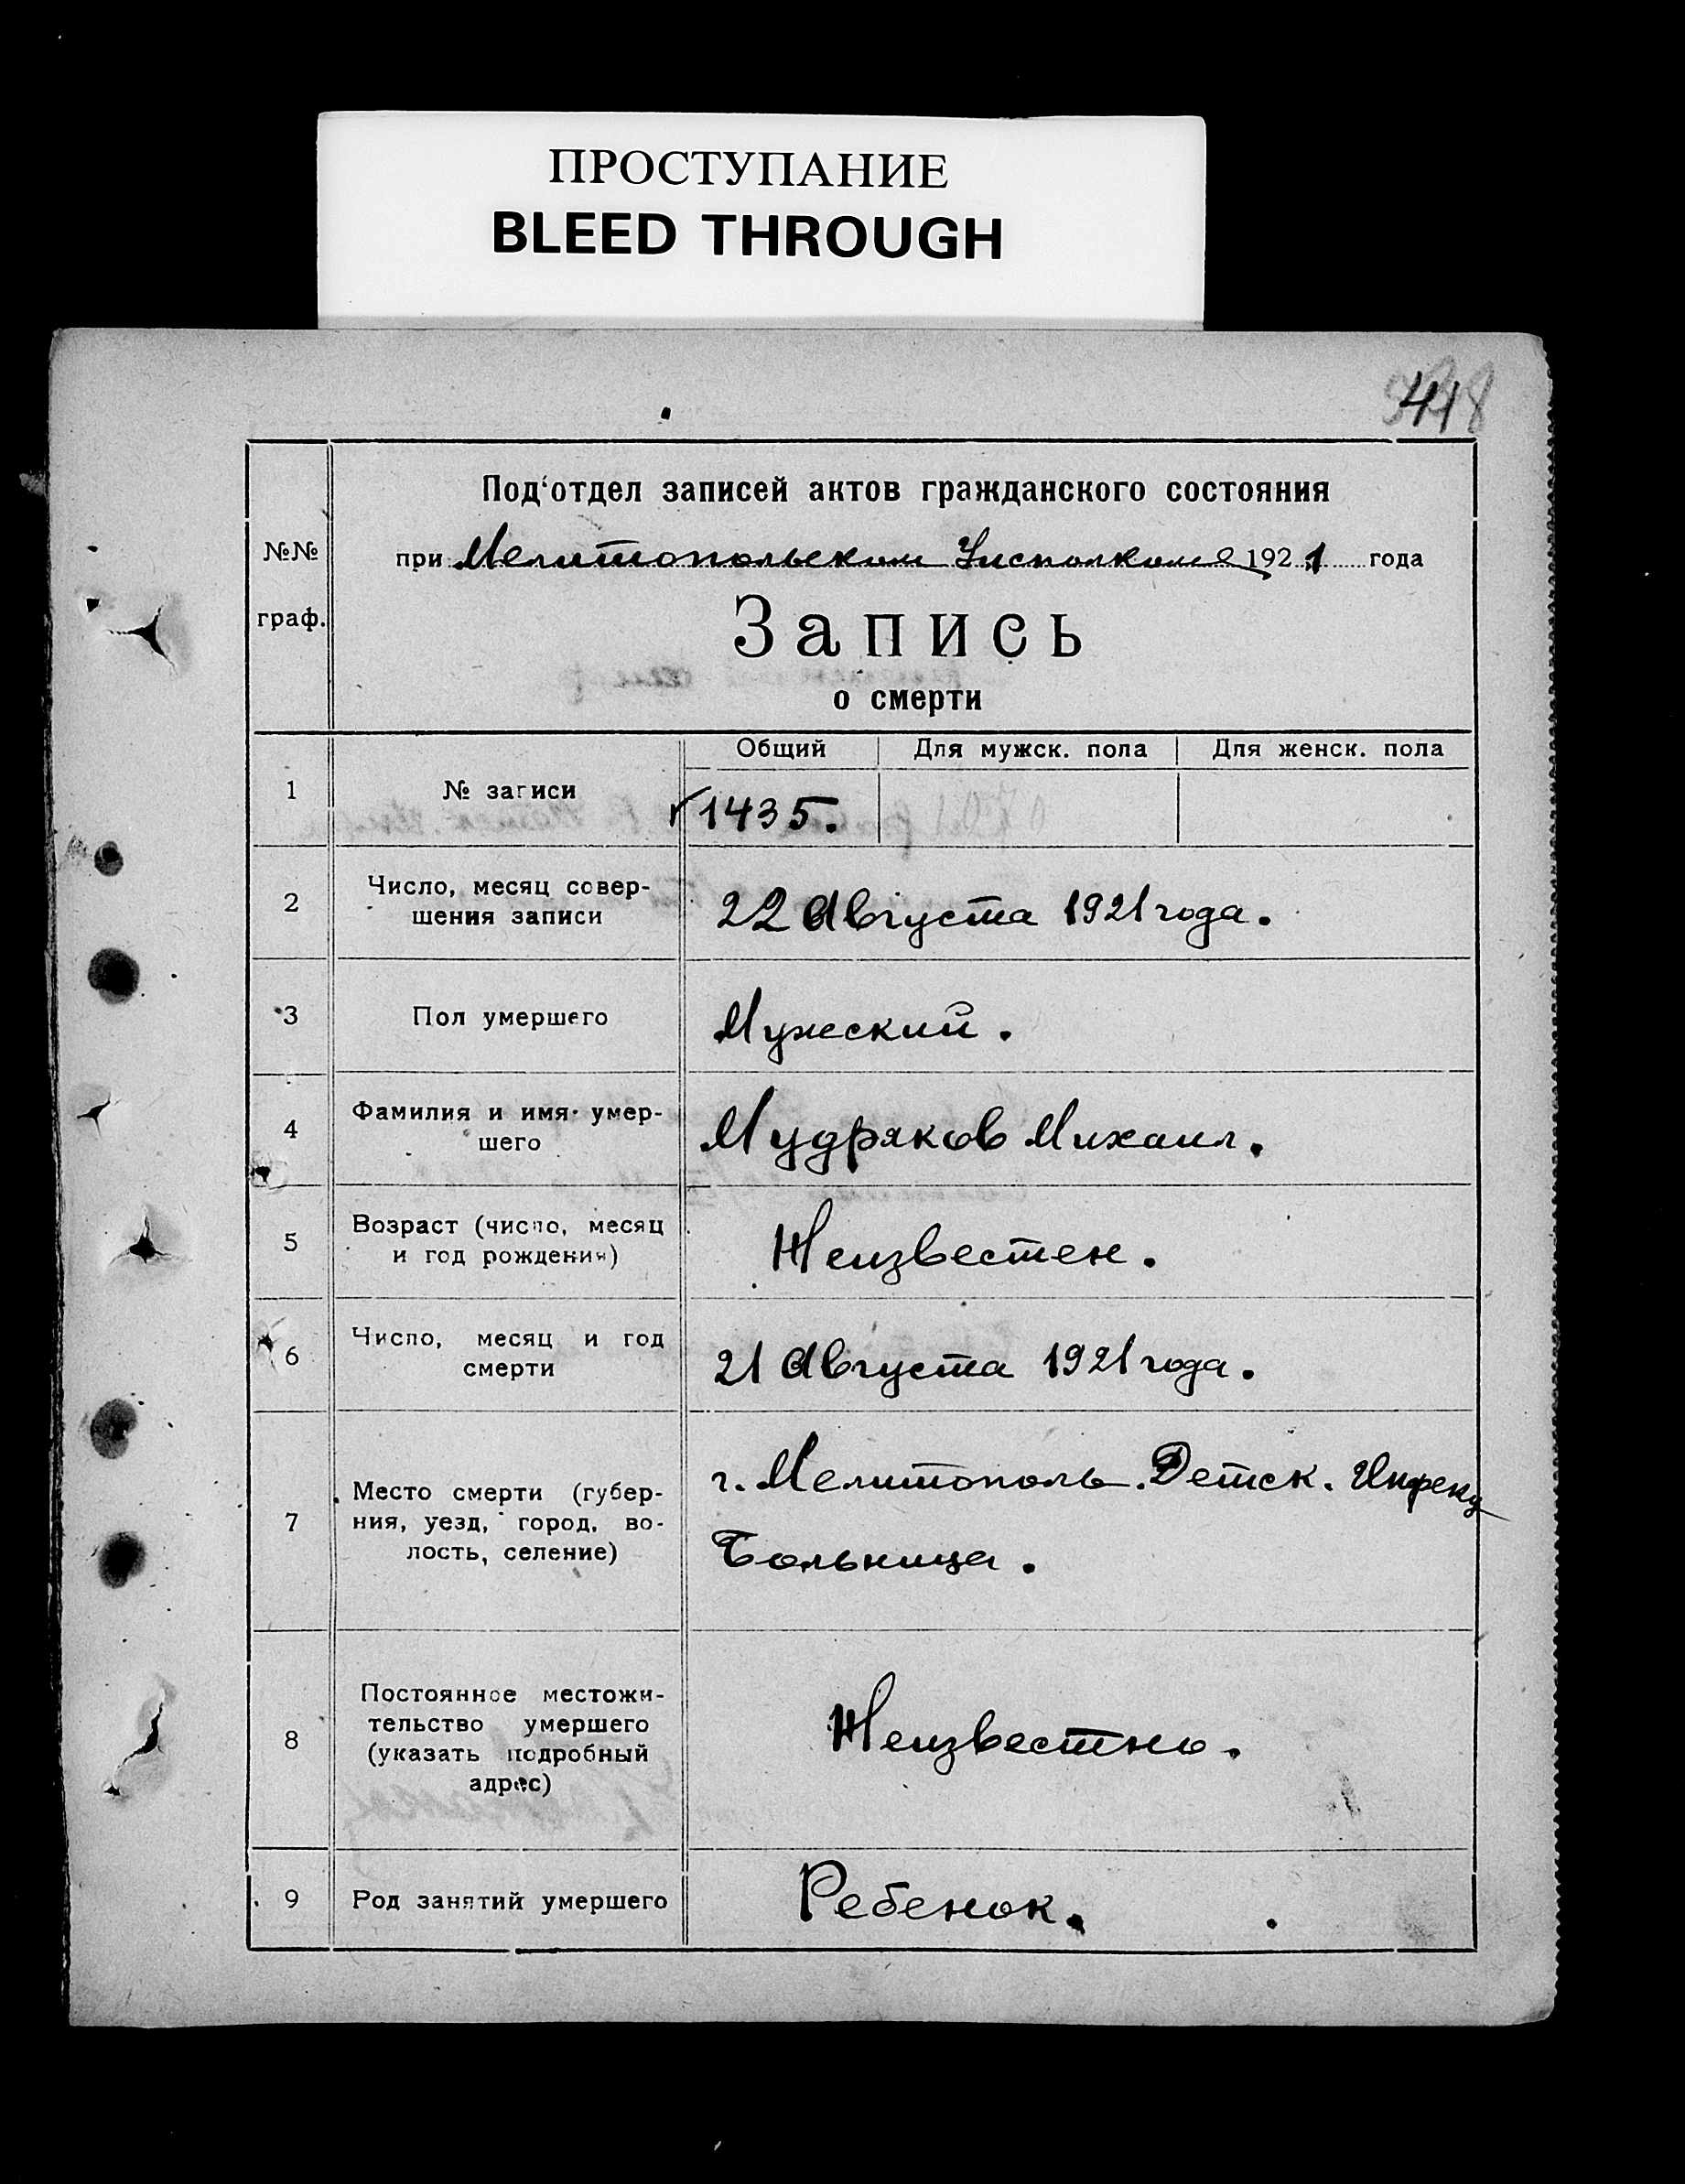 ПРОСТУПАНИЕ
BLEED THROUGH
Под'отдел записей актов гражданского состояния
№№
граф.
при Мелитопольском Исполкоме 1921 года
Запись
о смерти
Общий Для мужск. пола Для женск. пола
1 № записи 1435.
2 Число, месяц совер-
шения записи 22 Августа 1921 года.
3 Пол умершего Мужеский.
4 Фамилия и имя умер-
шего Мудряков Михаил.
5 Возраст (число, месяц
и год рождения) Неизвестен.
6 Число, месяц и год
смерти 21 Августа 1921 года.
7 Место смерти (губер-
ния, уезд, город, во-
лость, селение) г. Мелитополь. Детск. Инфекц
Больница.
8 Постоянное местожи-
тельство умершего
(указать подробный
адрес) Неизвестно.
9 Род занятий умершего Ребенок.